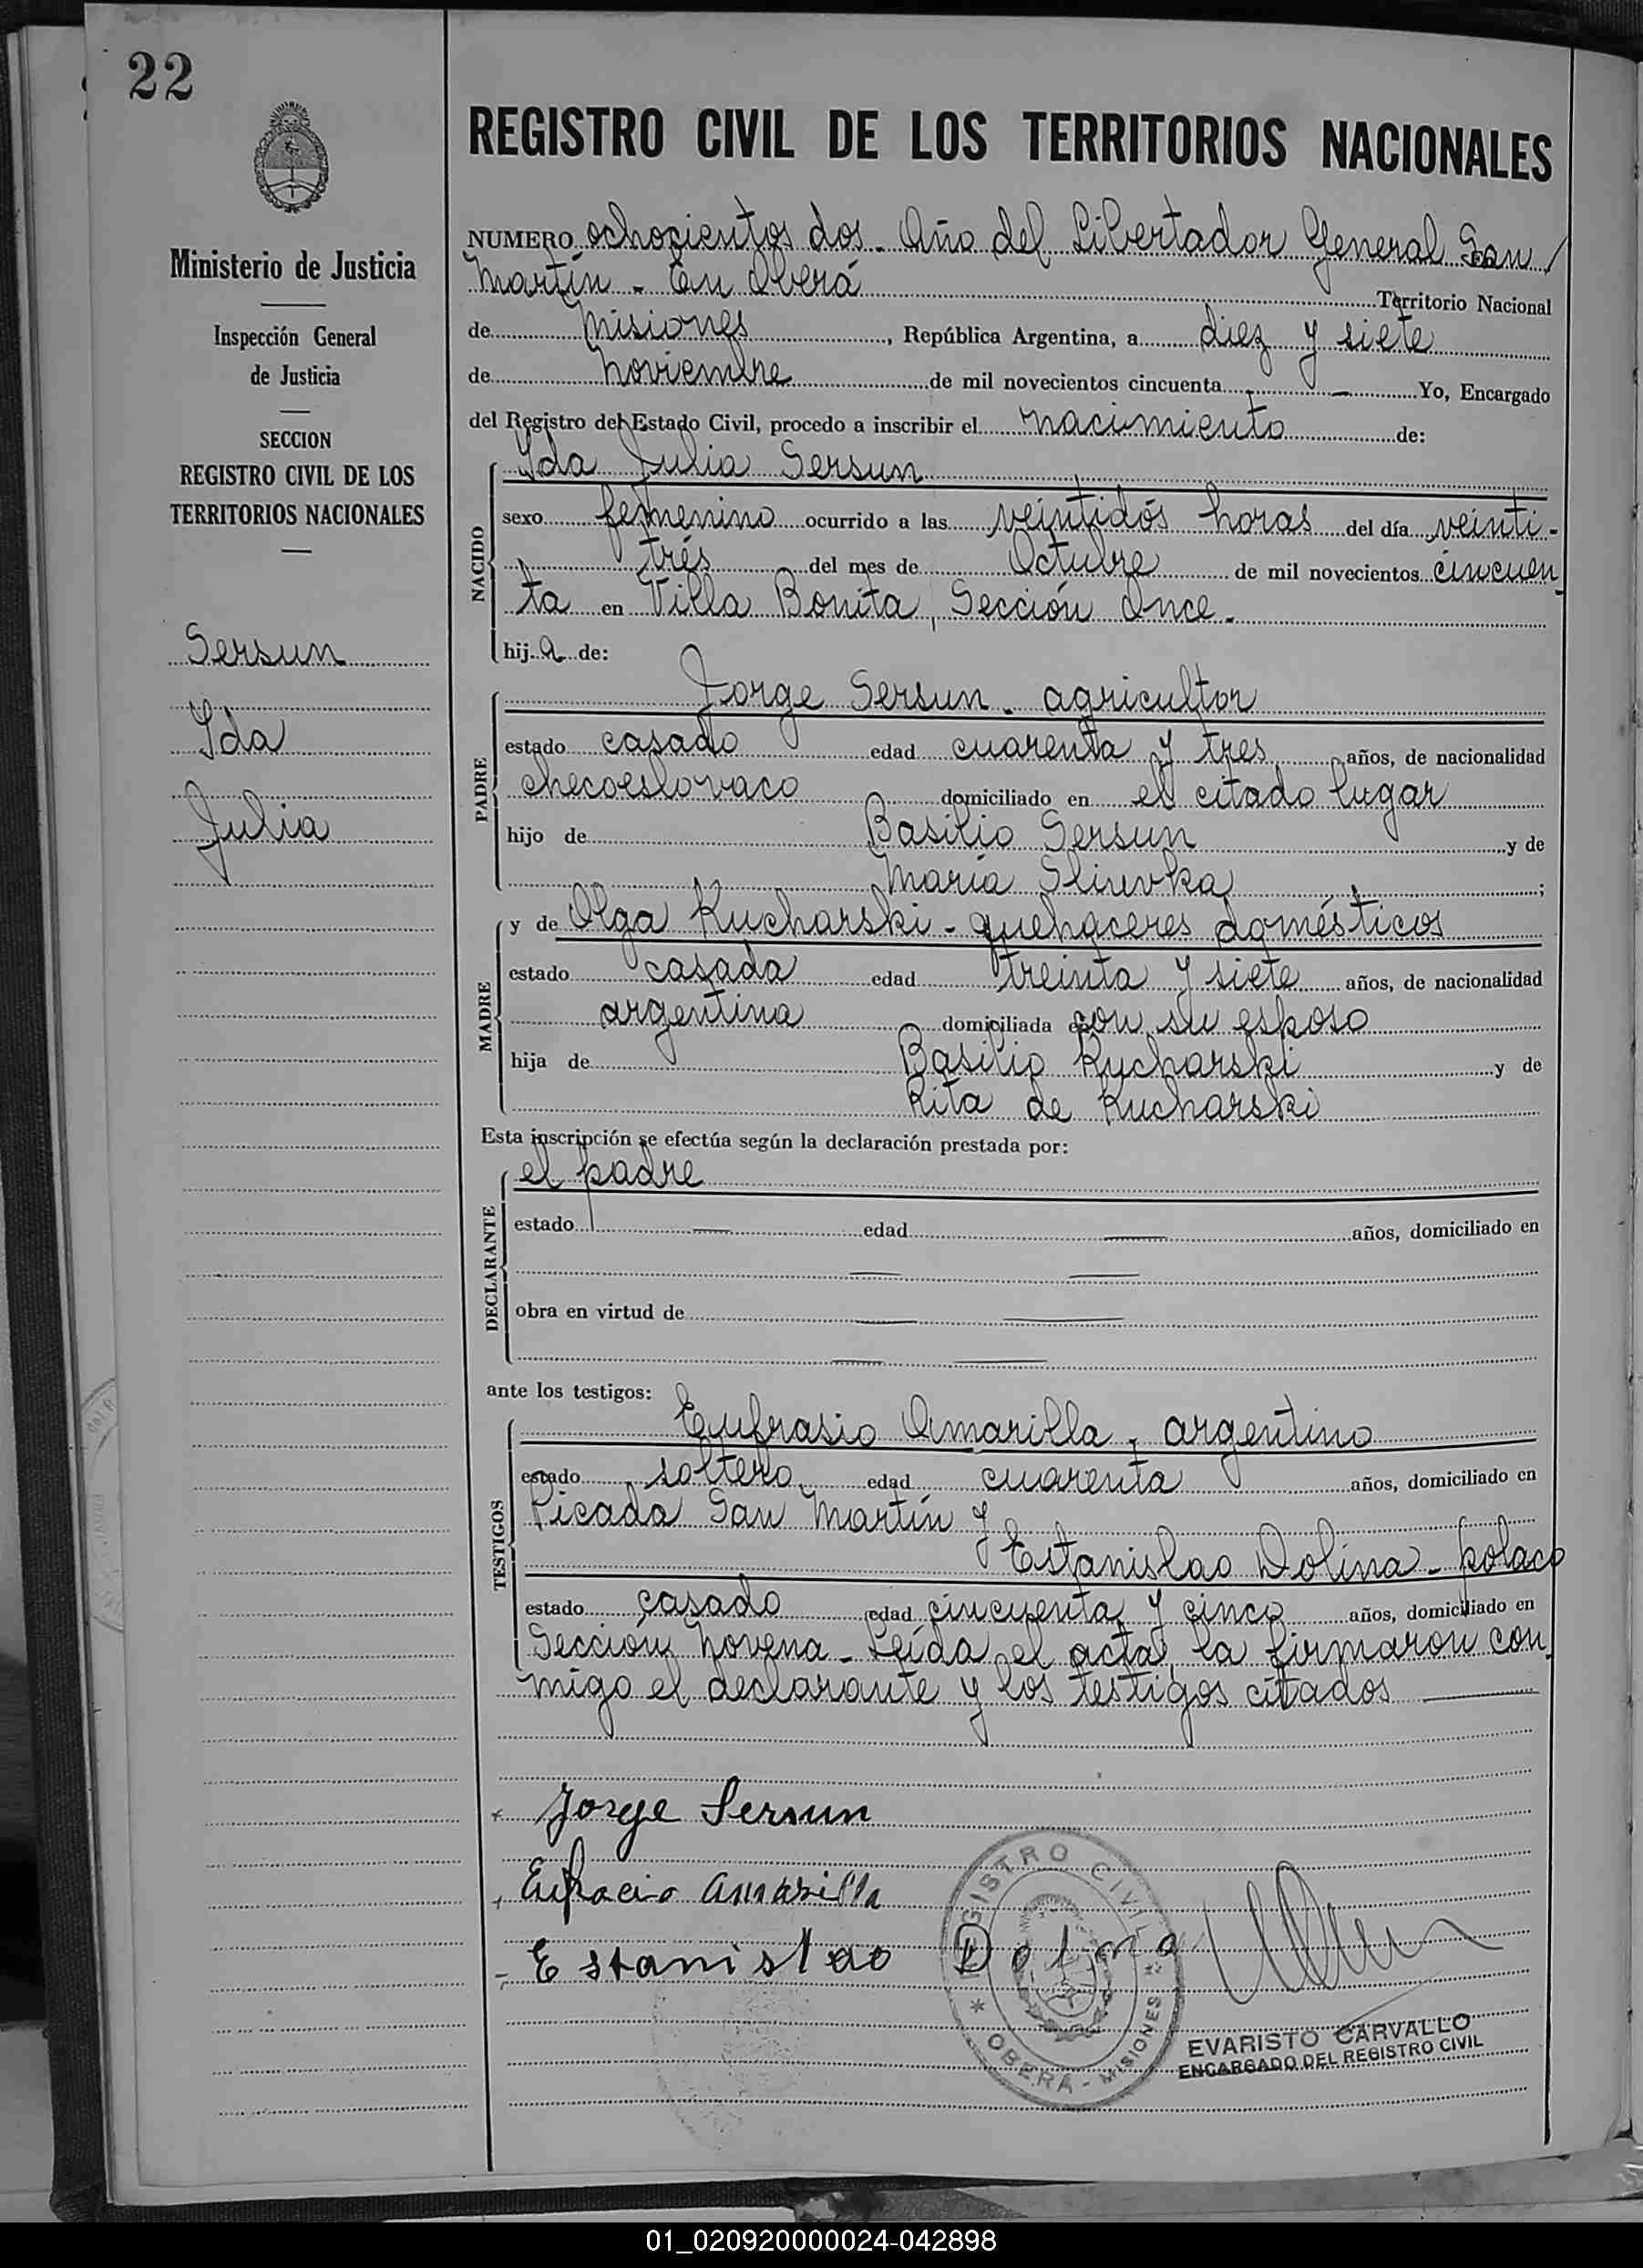 22
Ministerio de Justicia
Inspección General
de Justicia
SECCION
REGISTRO CIVIL DE LOS
TERRITORIOS NACIONALES
Sersun
Ida
Julia
REGISTRO CIVIL DE LOS TERRITORIOS NACIONALES
NUMERO ochocientos dos - Año del Libertador General San
Martín - En Oberá Territorio Nacional
de Misiones, República Argentina, a diez y siete
de noviembre de mil novecientos cincuenta Yo, Encargado
del Registro del Estado Civil, procedo a inscribir el nacimiento de:
NACIDO
Ida Julia Sersun
sexo femenino ocurrido a las veintidós horas del día veinti-
trés del mes de Octubre de mil novecientos cincuen-
ta en Villa Bonita, Sección Once.
hija de:
PADRE
Jorge Sersun - agricultor
estado casado edad cuarenta y tres años, de nacionalidad
checoeslovaco domiciliado en el citado lugar
hijo de Basilio Sersun y de
María Slivvka;
MADRE
y de Olga Kucharski - quehaceres domésticos
estado casada edad treinta y siete años, de nacionalidad
argentina domiciliada en con su esposo
hija de Basilio Kucharski y de
Rita de Kucharski
Esta inscripción se efectúa según la declaración prestada por:
DECLARANTE
el padre
estado — edad — años, domiciliado en
obra en virtud de
ante los testigos:
TESTIGOS
Eufrasio Amarilla, argentino
estado soltero edad cuarenta años, domiciliado en
Picada San Martín y
Estanislao Dolina - polaco
estado casado edad cincuenta y cinco años, domiciliado en
Sección Novena - Leída el acta, la firmaron con-
migo el declarante y los testigos citados
Jorge Sersun
Eufracio Amarilla
Estanislao Dolina
REGISTRO CIVIL
* OBERÁ - MISIONES *
EVARISTO CARVALLO
ENCARGADO DEL REGISTRO CIVIL
01_020920000024-042898